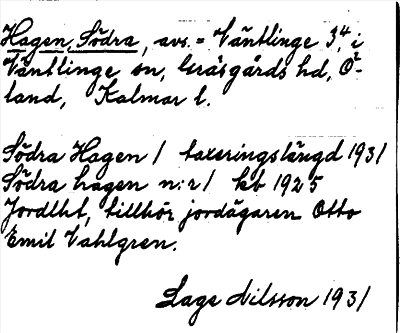 Hagen, Södra, avs. = Väntlinge 3⁴, i
Väntlinge sn, Gräsgårds hd, Ö-
land, Kalmar l.
Södra Hagen / taxeringslängd 1931
Södra hagen n:r 1 kb 1925
Jordlht, tillhör jordägaren Otto
Emil Vahlgren.
Lage Nilsson 1931